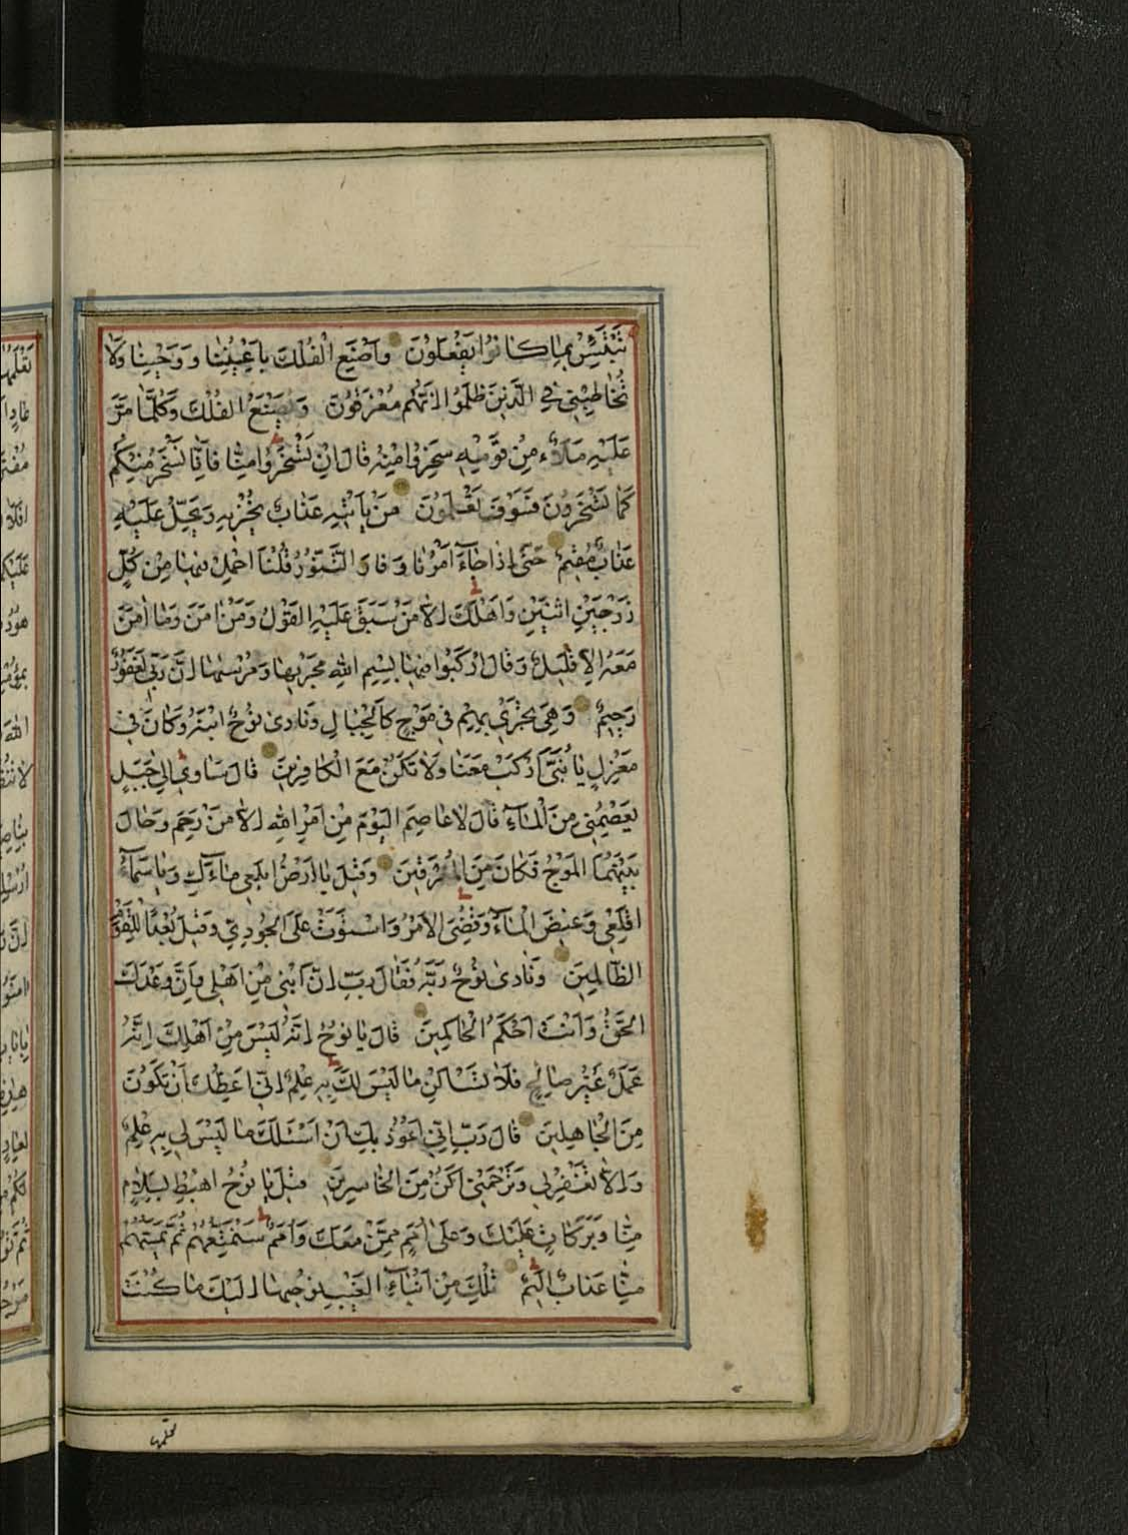 تَبْتَئِسْ بِمٰا كٰانُوا يَفْعَلُونَ وَاصْنَعِ الْفُلْكَ بِاَعْيُنِنٰا وَوَحْيِنٰا وَلٰا
تُخٰاطِبْنِي فِي الَّذِينَ ظَلَمُوا اِنَّهُمْ مُغْرَقُونَ وَيَصْنَعُ الْفُلْكَ وَكُلَّمٰا مَرَّ
عَلَيْهِ مَلَاءٌ مِنْ قَوْمِهِ سَخِرُوا مِنْهُ قٰالَ اِنْ تَسْخَرُوا مِنّٰا فَاِنّٰا نَسْخَرُ مِنْكُمْ
كَمٰا تَسْخَرُونَ فَسَوْفَ تَعْلَمُونَ مَنْ يَاْتِيهِ عَذٰابٌ يُخْزِيهِ وَيَحِلُّ عَلَيْهِ
عَذٰابٌ مُقِيمٌ حَتّٰى اِذٰا جٰاءَ اَمْرُنٰا وَفٰارَ التَّنُّورُ قُلْنَا احْمِلْ فِيهٰا مِنْ كُلٍّ
زَوْجَيْنِ اثْنَيْنِ وَاَهْلَكَ اِلّٰا مَنْ سَبَقَ عَلَيْهِ الْقَوْلُ وَمَنْ اٰمَنَ وَمٰا اٰمَنَ
مَعَهُ اِلّٰا قَلِيلٌ وَقٰالَ ارْكَبُوا فِيهٰا بِسْمِ اللّٰهِ مَجْرٰيهٰا وَمُرْسٰيهٰا اِنَّ رَبِّي لَغَفُورٌ
رَحِيمٌ وَهِيَ تَجْرِي بِهِمْ فِي مَوْجٍ كَالْجِبٰالِ وَنٰادٰى نُوحٌ ابْنَهُ وَكٰانَ فِي
مَعْزِلٍ يٰا بُنَيَّ ارْكَبْ مَعَنٰا وَلٰا تَكُنْ مَعَ الْكٰافِرِينَ قٰالَ سَاٰوِي اِلٰى جَبَلٍ
يَعْصِمُنِي مِنَ الْمٰاءِ قٰالَ لٰا عٰاصِمَ الْيَوْمَ مِنْ اَمْرِ اللّٰهِ اِلّٰا مَنْ رَحِمَ وَحٰالَ
بَيْنَهُمَا الْمَوْجُ فَكٰانَ مِنَ الْمُغْرَقِينَ وَقِيلَ يٰا اَرْضُ ابْلَعِي مٰاءَكِ وَيٰا سَمٰاءُ
اَقْلِعِي وَغِيضَ الْمٰاءُ وَقُضِيَ الْاَمْرُ وَاسْتَوَتْ عَلَى الْجُودِيِّ وَقِيلَ بُعْدًا لِلْقَوْمِ
الظّٰالِمِينَ وَنٰادٰى نُوحٌ رَبَّهُ فَقٰالَ رَبِّ اِنَّ ابْنِي مِنْ اَهْلِي وَاِنَّ وَعْدَكَ
الْحَقُّ وَاَنْتَ اَحْكَمُ الْحٰاكِمِينَ قٰالَ يٰا نُوحُ اِنَّهُ لَيْسَ مِنْ اَهْلِكَ اِنَّهُ
عَمَلٌ غَيْرُ صٰالِحٍ فَلٰا تَسْاَلْنِ مٰا لَيْسَ لَكَ بِهِ عِلْمٌ اِنِّي اَعِظُكَ اَنْ تَكُونَ
مِنَ الْجٰاهِلِينَ قٰالَ رَبِّ اِنِّي اَعُوذُ بِكَ اَنْ اَسْئَلَكَ مٰا لَيْسَ لِي بِهِ عِلْمٌ
وَاِلّٰا تَغْفِرْ لِي وَتَرْحَمْنِي اَكُنْ مِنَ الْخٰاسِرِينَ قِيلَ يٰا نُوحُ اهْبِطْ بِسَلٰامٍ
مِنّٰا وَبَرَكٰاتٍ عَلَيْكَ وَعَلٰى اُمَمٍ مِمَّنْ مَعَكَ وَاُمَمٌ سَنُمَتِّعُهُمْ ثُمَّ يَمَسُّهُمْ
مِنّٰا عَذٰابٌ اَلِيمٌ تِلْكَ مِنْ اَنْبٰاءِ الْغَيْبِ نُوحِيهٰا اِلَيْكَ مٰا كُنْتَ
تعلمها